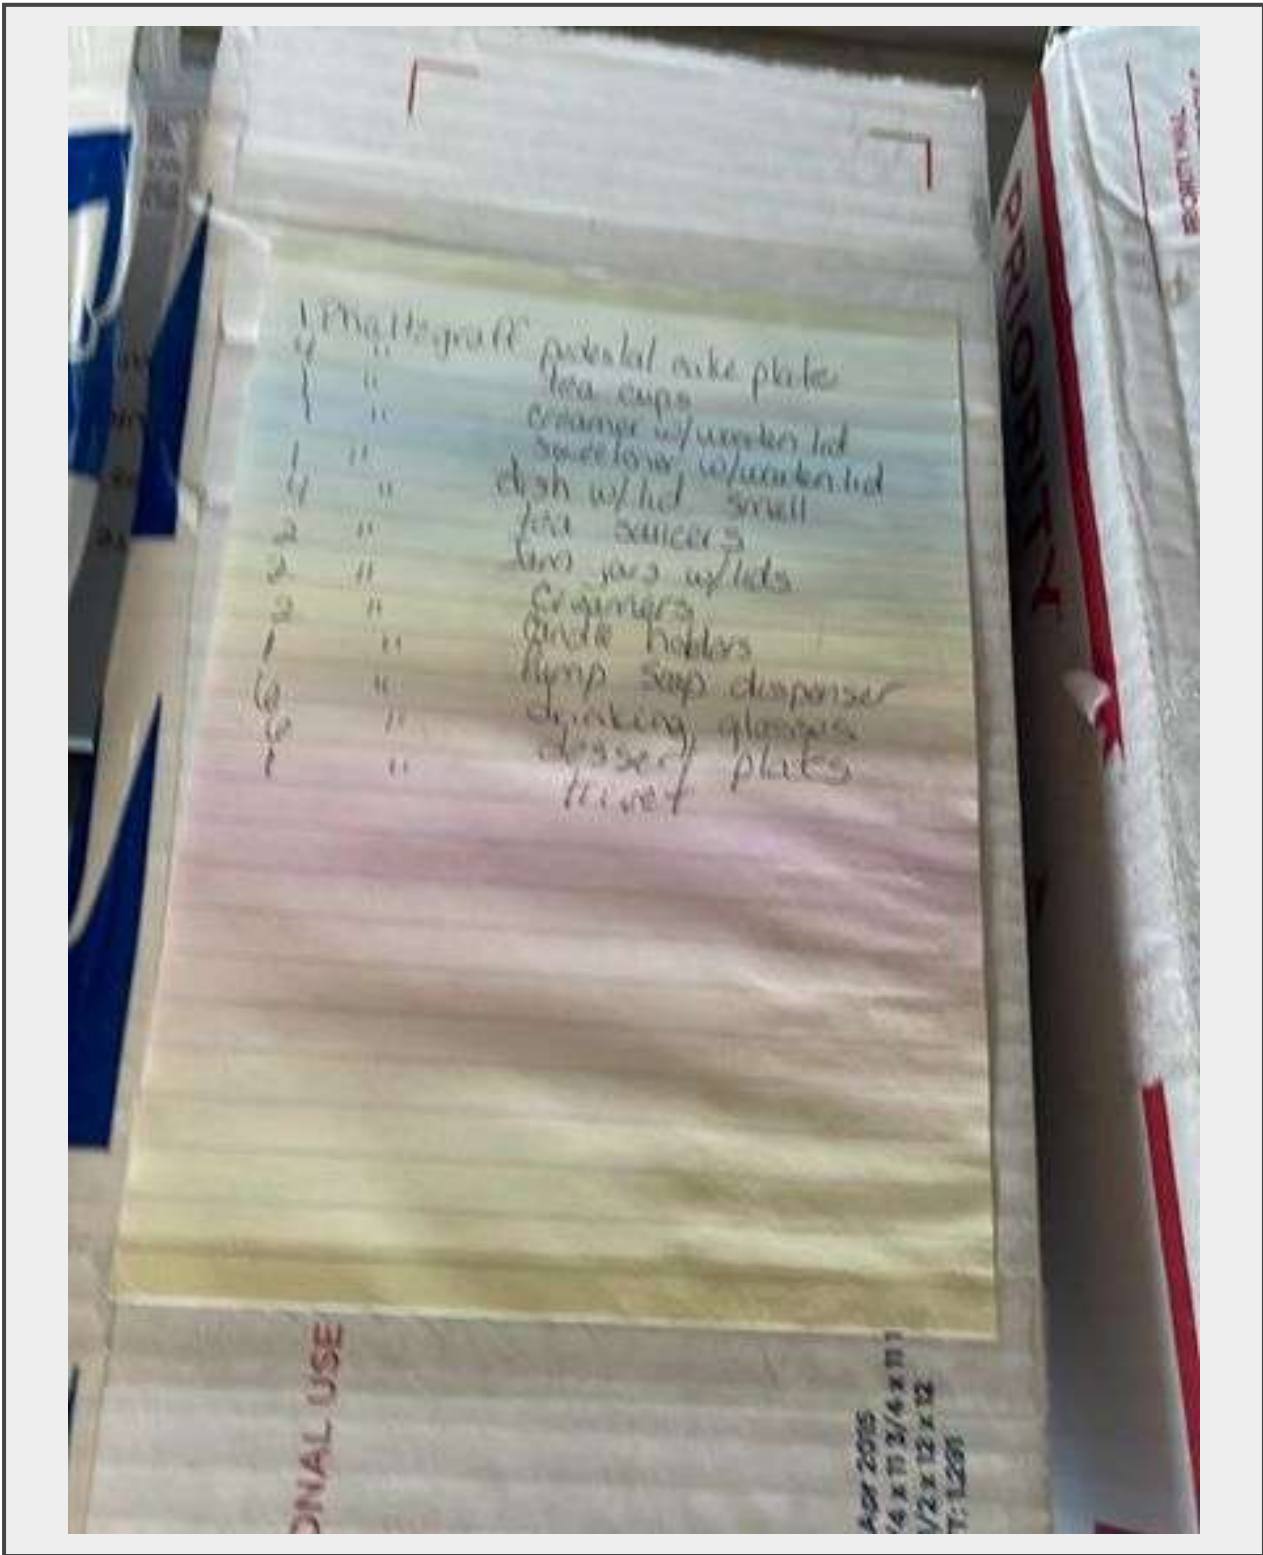 1 Phaltzgraff pedestal cake plate
4 " tea cups
1 " creamer w/wooden lid
1 " w/wooden lid
1 " dish w/lid small
4 " tea saucers
2 " Jam jars w/lids
2 " Creamers
2 " Candle holders
1 " Pump Soap dispenser
6 " drinking glasses
6 " dessert plates
1 " trivet
PRIORITY
ONAL USE
Apr 2015
/4 x 11 3/4 x 11
1/2 x 12 x 12